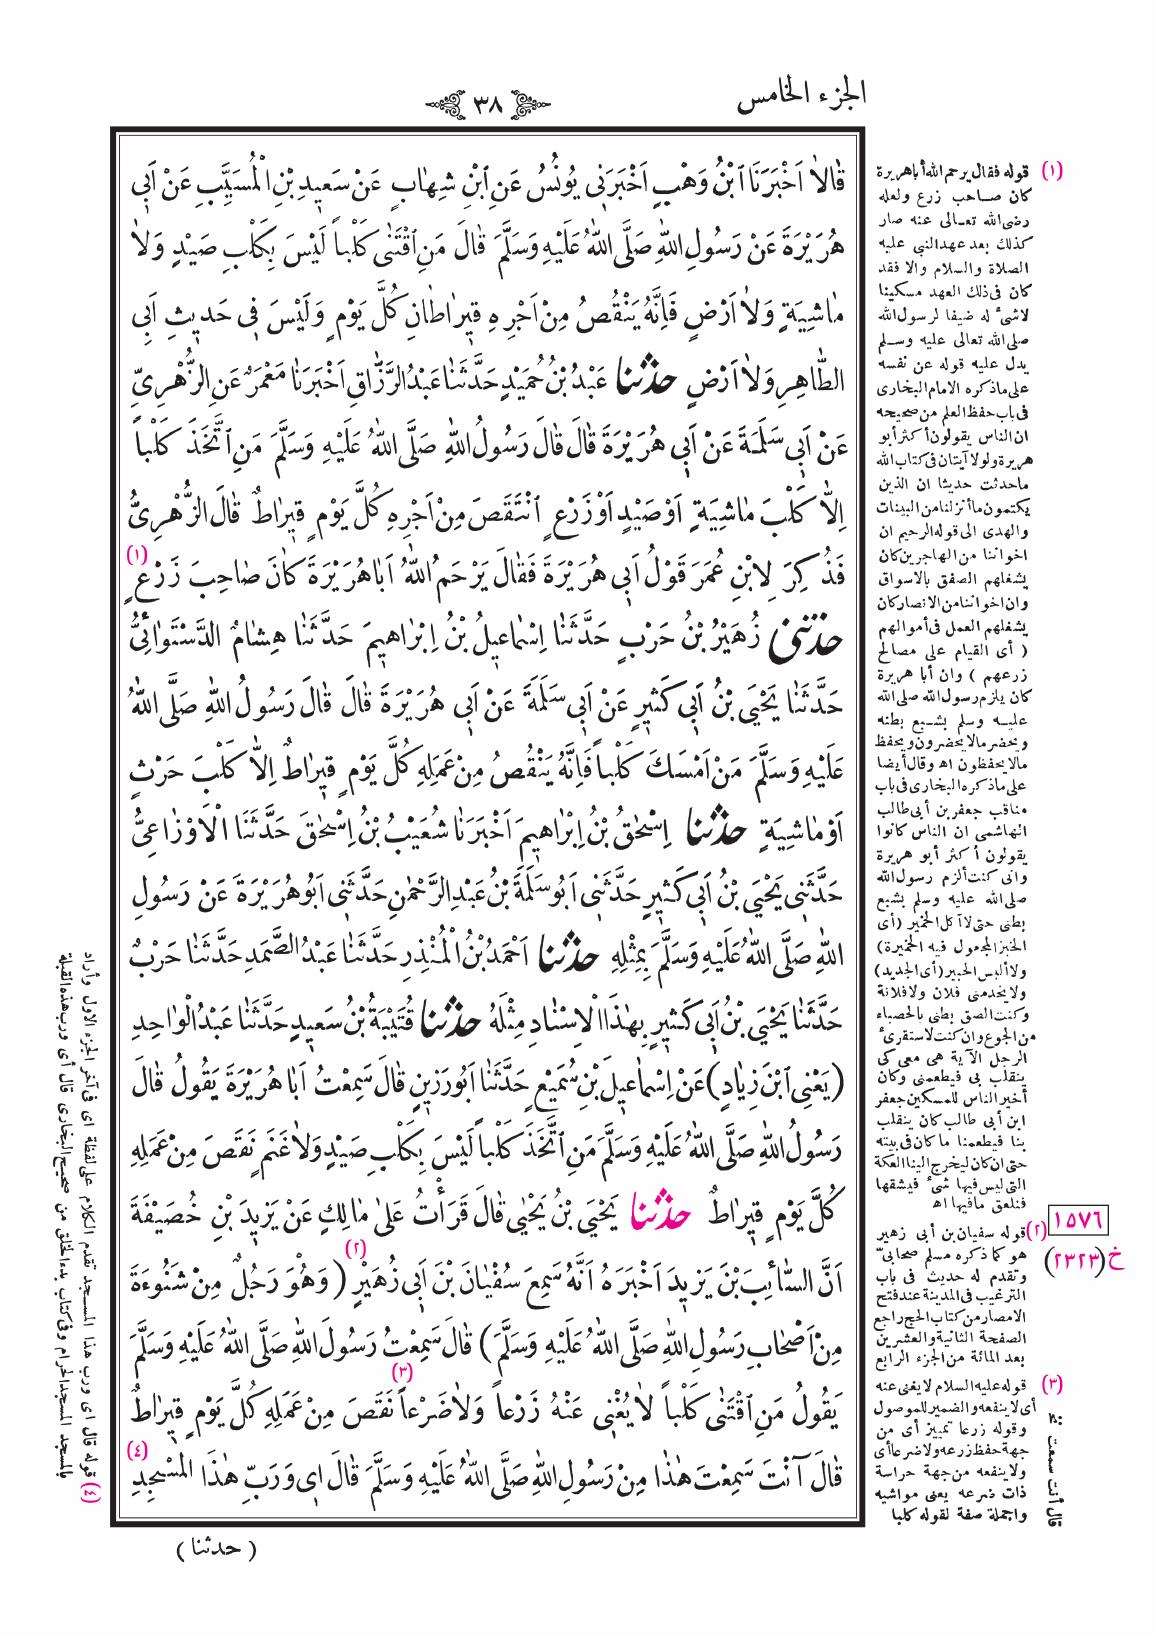 الجزء الخامس
٣٨
قَالَا اَخْبَرَنَا ابْنُ وَهْبٍ اَخْبَرَنِى يُونُسُ عَنِ ابْنِ شِهَابٍ عَنْ سَعِيدِ بْنِ الْمُسَيَّبِ عَنْ اَبِى
هُرَيْرَةَ عَنْ رَسُولِ اللّٰهِ صَلَّى اللّٰهُ عَلَيْهِ وَسَلَّمَ قَالَ مَنِ اقْتَنٰى كَلْباً لَيْسَ بِكَلْبِ صَيْدٍ وَلَا
مَاشِيَةٍ وَلَا اَرْضٍ فَاِنَّهُ يَنْقُصُ مِنْ اَجْرِهِ قِيرَاطَانِ كُلَّ يَوْمٍ وَلَيْسَ فِى حَدِيثِ اَبِى
الطَّاهِرِ وَلَا اَرْضٍ حدثنا عَبْدُ بْنُ حُمَيْدٍ حَدَّثَنَا عَبْدُ الرَّزَّاقِ اَخْبَرَنَا مَعْمَرٌ عَنِ الزُّهْرِىِّ
عَنْ اَبِى سَلَمَةَ عَنْ اَبِى هُرَيْرَةَ قَالَ قَالَ رَسُولُ اللّٰهِ صَلَّى اللّٰهُ عَلَيْهِ وَسَلَّمَ مَنِ اتَّخَذَ كَلْباً
اِلَّا كَلْبَ مَاشِيَةٍ اَوْ صَيْدٍ اَوْ زَرْعٍ انْتَقَصَ مِنْ اَجْرِهِ كُلَّ يَوْمٍ قِيرَاطٌ قَالَ الزُّهْرِىُّ
فَذُكِرَ لِابْنِ عُمَرَ قَوْلُ اَبِى هُرَيْرَةَ فَقَالَ يَرْحَمُ اللّٰهُ اَبَا هُرَيْرَةَ كَانَ صَاحِبَ زَرْعٍ (١)
حدثنى زُهَيْرُ بْنُ حَرْبٍ حَدَّثَنَا اِسْمَاعِيلُ بْنُ اِبْرَاهِيمَ حَدَّثَنَا هِشَامٌ الدَّسْتَوَائِىُّ
حَدَّثَنَا يَحْيَى بْنُ اَبِى كَثِيرٍ عَنْ اَبِى سَلَمَةَ عَنْ اَبِى هُرَيْرَةَ قَالَ قَالَ رَسُولُ اللّٰهِ صَلَّى اللّٰهُ
عَلَيْهِ وَسَلَّمَ مَنْ اَمْسَكَ كَلْباً فَاِنَّهُ يَنْقُصُ مِنْ عَمَلِهِ كُلَّ يَوْمٍ قِيرَاطٌ اِلَّا كَلْبَ حَرْثٍ
اَوْ مَاشِيَةٍ حدثنا اِسْحٰقُ بْنُ اِبْرَاهِيمَ اَخْبَرَنَا شُعَيْبُ بْنُ اِسْحٰقَ حَدَّثَنَا الْاَوْزَاعِىُّ
حَدَّثَنِى يَحْيَى بْنُ اَبِى كَثِيرٍ حَدَّثَنِى اَبُو سَلَمَةَ بْنُ عَبْدِ الرَّحْمٰنِ حَدَّثَنِى اَبُو هُرَيْرَةَ عَنْ رَسُولِ
اللّٰهِ صَلَّى اللّٰهُ عَلَيْهِ وَسَلَّمَ بِمِثْلِهِ حدثنا اَحْمَدُ بْنُ الْمُنْذِرِ حَدَّثَنَا عَبْدُ الصَّمَدِ حَدَّثَنَا حَرْبٌ
حَدَّثَنَا يَحْيَى بْنُ اَبِى كَثِيرٍ بِهٰذَا الْاِسْنَادِ مِثْلَهُ حدثنا قُتَيْبَةُ بْنُ سَعِيدٍ حَدَّثَنَا عَبْدُ الْوَاحِدِ
(يَعْنِى ابْنَ زِيَادٍ) عَنْ اِسْمَاعِيلَ بْنِ سُمَيْعٍ حَدَّثَنَا اَبُو رَزِينٍ قَالَ سَمِعْتُ اَبَا هُرَيْرَةَ يَقُولُ قَالَ
رَسُولُ اللّٰهِ صَلَّى اللّٰهُ عَلَيْهِ وَسَلَّمَ مَنِ اتَّخَذَ كَلْباً لَيْسَ بِكَلْبِ صَيْدٍ وَلَا غَنَمٍ نَقَصَ مِنْ عَمَلِهِ
كُلَّ يَوْمٍ قِيرَاطٌ حدثنا يَحْيَى بْنُ يَحْيٰى قَالَ قَرَأْتُ عَلٰى مَالِكٍ عَنْ يَزِيدَ بْنِ خُصَيْفَةَ
اَنَّ السَّائِبَ بْنَ يَزِيدَ اَخْبَرَهُ اَنَّهُ سَمِعَ سُفْيَانَ بْنَ اَبِى زُهَيْرٍ (٢) (وَهُوَ رَجُلٌ مِنْ شَنُوءَةَ
مِنْ اَصْحَابِ رَسُولِ اللّٰهِ صَلَّى اللّٰهُ عَلَيْهِ وَسَلَّمَ) قَالَ سَمِعْتُ رَسُولَ اللّٰهِ صَلَّى اللّٰهُ عَلَيْهِ وَسَلَّمَ
يَقُولُ مَنِ اقْتَنٰى كَلْباً لَا يُغْنِى عَنْهُ زَرْعاً وَلَا ضَرْعاً (٣) نَقَصَ مِنْ عَمَلِهِ كُلَّ يَوْمٍ قِيرَاطٌ
قَالَ آنْتَ سَمِعْتَ هٰذَا مِنْ رَسُولِ اللّٰهِ صَلَّى اللّٰهُ عَلَيْهِ وَسَلَّمَ قَالَ اِى وَرَبِّ هٰذَا الْمَسْجِدِ (٤)
( حدثنا )
(١) قوله فقال يرحم الله أبا هريرة
كان صاحب زرع ولعله
رضى الله تعالى عنه صار
كذلك بعد عهد النبى عليه
الصلاة والسلام والا فقد
كان فى ذلك العهد مسكينا
لاشئ له ضيفا لرسول الله
صلى الله تعالى عليه وسلم
يدل عليه قوله عن نفسه
على ماذكره الامام البخارى
فى باب حفظ العلم من صحيحه
ان الناس يقولون أكثر أبو
هريرة ولولا آيتان فى كتاب الله
ماحدثت حديثا ان الذين
يكتمون ما أنزلنا من البينات
والهدى الى قوله الرحيم ان
اخواننا من المهاجرين كان
يشغلهم الصفق بالاسواق
وان اخواننا من الانصار كان
يشغلهم العمل فى أموالهم
( أى القيام على مصالح
زرعهم ) وان أبا هريرة
كان يلزم رسول الله صلى الله
عليه وسلم بشبع بطنه
ويحضر مالا يحضرون ويحفظ
مالا يحفظون اه وقال أيضا
على ماذكره البخارى فى باب
مناقب جعفر بن أبى طالب
الهاشمى ان الناس كانوا
يقولون أكثر أبو هريرة
وانى كنت ألزم رسول الله
صلى الله عليه وسلم بشبع
بطنى حتى لا آكل الخمير (أى
الخبز المجمول فيه الخميرة)
ولا ألبس الحبير (أى الجديد)
ولا يخدمنى فلان ولا فلانة
وكنت الصق بطنى بالحصباء
من الجوع وان كنت لاستقرئ
الرجل الآية هى معى كى
ينقلب بى فيطعمنى وكان
أخير الناس للمسكين جعفر
ابن أبى طالب كان ينقلب
بنا فيطعمنا ما كان فى بيته
حتى ان كان ليخرج الينا العكة
التى ليس فيها شئ فيشقها
فنلعق مافيها اه
(٢) قوله سفيان بن أبى زهير
هو كما ذكره مسلم صحابىّ
وتقدم له حديث فى باب
الترغيب فى المدينة عند فتح
الامصار من كتاب الحج راجع
الصفحة الثانية والعشرين
بعد المائة من الجزء الرابع
(٣) قوله عليه السلام لا يغنى عنه
أى لا ينفعه والضمير للموصول
وقوله زرعا تمييز أى من
جهة حفظ زرعه ولا ضرعا أى
ولا ينفعه من جهة حراسة
ذات ضرعه يعنى مواشيه
والجملة صفة لقوله كلبا
١٥٧٦
خ (٢٣٢٣)
قال أنت سمعت نخ
(٤) قوله قال اى ورب هذا المسجد تقدم الكلام على لفظة اى فى آخر الجزء الاول وأراد
بالمسجد المسجد الحرام وفى كتاب بدء الخلق من صحيح البخارى قال أى ورب هذه القبلة